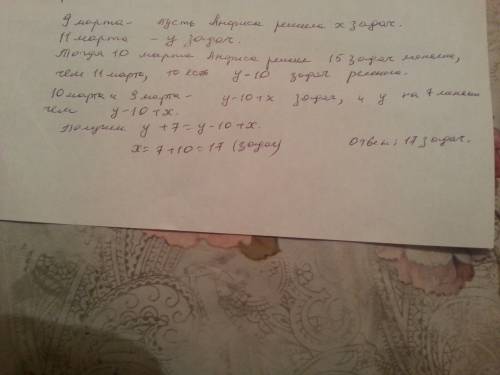 9 марта - пусть Андриса решила x задач.
11 марта - y задач.
Тогда 10 марта Андриса решила 15 задач меньше,
чем 11 марта, то есть y-10 задач решила.
10 марта и 9 марта - y-10+x задач, и y на 7 меньше
чем y-10+x.
Получим y+7=y-10+x.
x=7+10=17 (задач) Ответ: 17 задач.